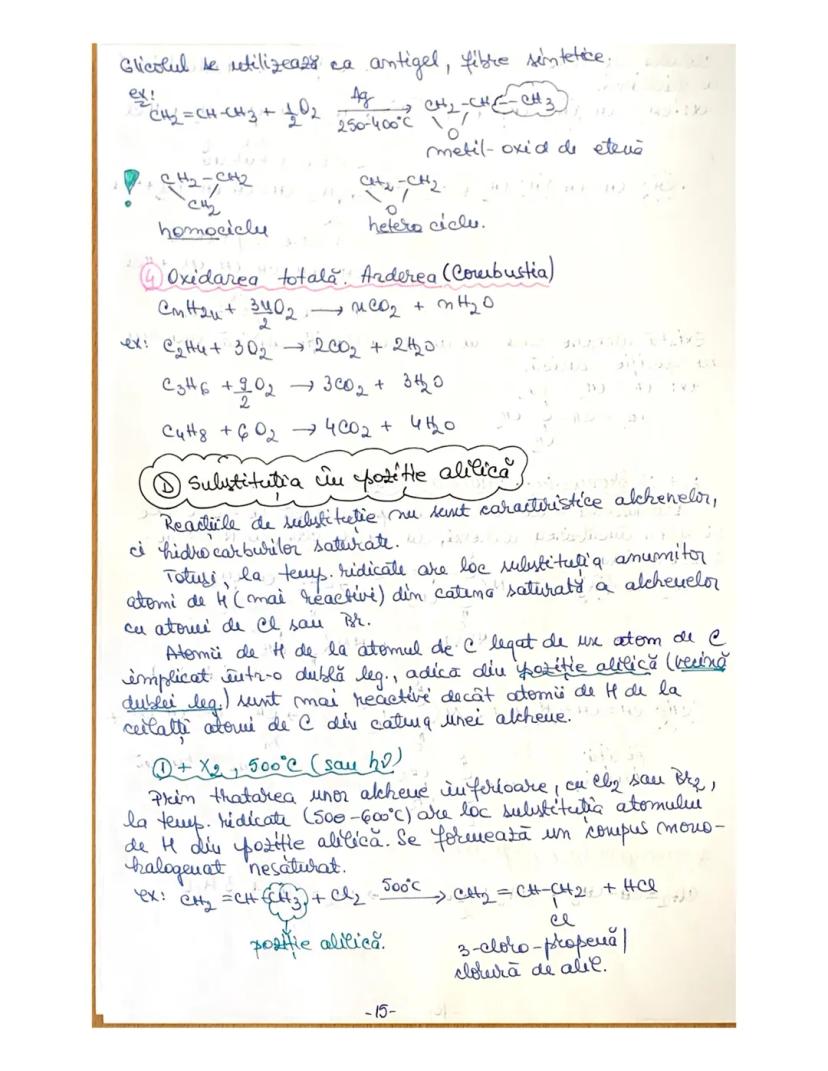 Glicolul se utilizează ca antigel, fibre sintetice.
ex: CH2=CH-CH3 + 1/2 O2 Ag 250-400°C → CH2-CH-CH3
O
metil-oxid de etenă
! CH2-CH2 CH2-CH2
CH2 O
homociclu heterociclu.
④ Oxidarea totală. Arderea (Combustia)
CnH2n + 3n/2 O2 → nCO2 + nH2O
ex: C2H4 + 3O2 → 2CO2 + 2H2O
C3H6 + 9/2 O2 → 3CO2 + 3H2O
C4H8 + 6O2 → 4CO2 + 4H2O
Ⓓ Substituția în poziție alilică
Reacțiile de substituție nu sunt caracteristice alchenelor,
ci hidrocarburilor saturate.
Totuși, la temp. ridicate are loc substituția anumitor
atomi de H (mai reactivi) din catena saturată a alchenelor
cu atomi de Cl sau Br.
Atomii de H de la atomul de C legat de un atom de C
implicat într-o dublă leg., adică din poziție alilică (vecină
dublei leg.) sunt mai reactivi decât atomii de H de la
ceilalți atomi de C din catena unei alchene.
① + X2, 500°C (sau hν)
Prin tratarea unor alchene inferioare, cu Cl2 sau Br2,
la temp. ridicate (500-600°C) are loc substituția atomului
de H din poziție alilică. Se formează un compus mono-
halogenat nesaturat.
ex: CH2=CH-CH3 + Cl2 500°C → CH2=CH-CH2 + HCl
Cl
poziție alilică. 3-cloro-propenă/
clorură de alil.
-15-